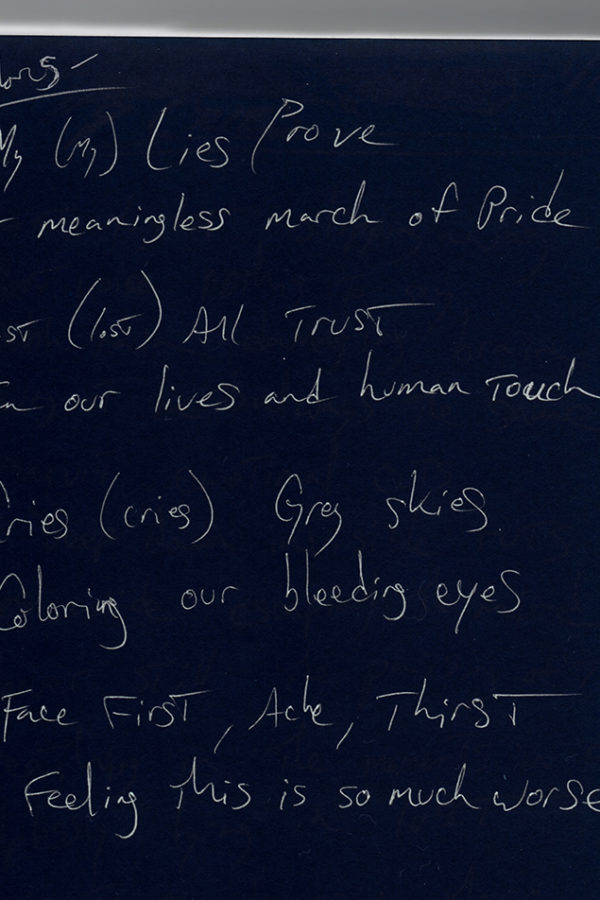 My (My) Lies Prove
meaningless march of Pride
(lost) All Trust
In our lives and human Touch
Cries (cries) Grey skies
Coloring our bleeding eyes
Face First, Ache, Thirst
Feeling This is so much worse